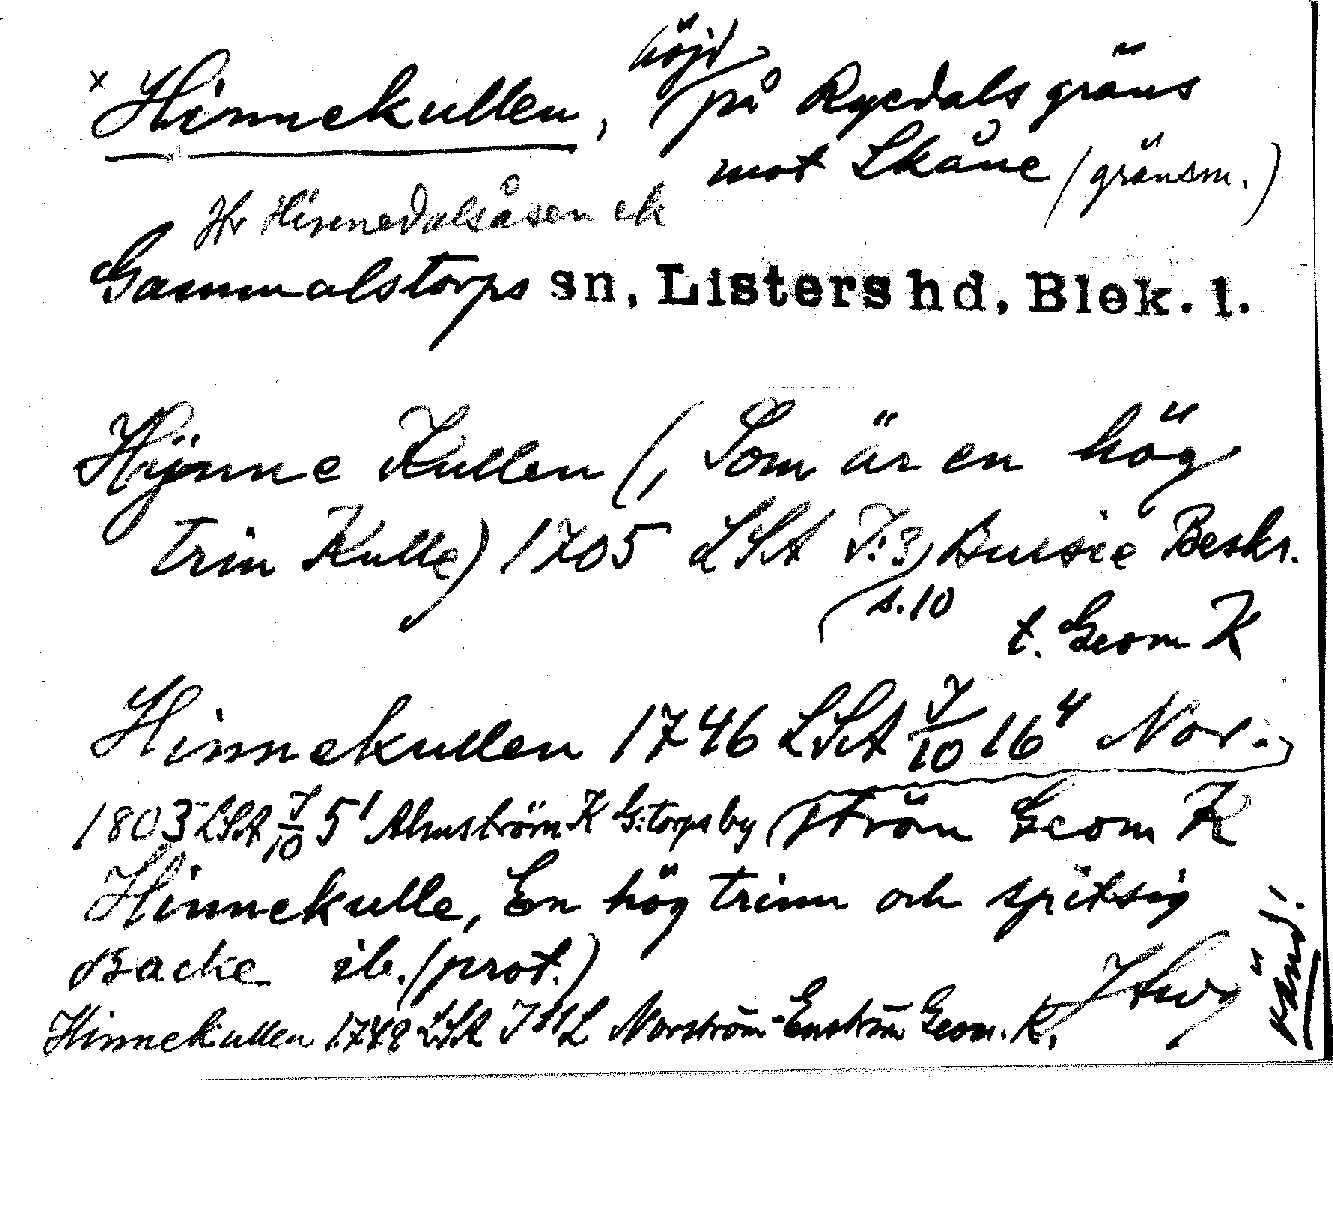 x Hinnekullen, höjd på Ryedals gräns
mot Skåne (gränsm.)
Hr Hinnedalsåsen ek
Gammalstorps sn, Listers hd, Blek. l.
Hijnne Kullen (, Som är en hög
trin Kulle) 1705 LSA J:3, Bursie Beskr.
s.10
t. Geom K
Hinnekullen 1746 LSA J/10 16⁴ Nor-
1803 LSA J/10 5¹ Almström K G:torps by
ström Geom K
Hinnekulle, En hög trinn och spitsig
Backe ib. (prot.)
Hinnekullen 1749 LSA Norström-Enström Geom. K.
känd!